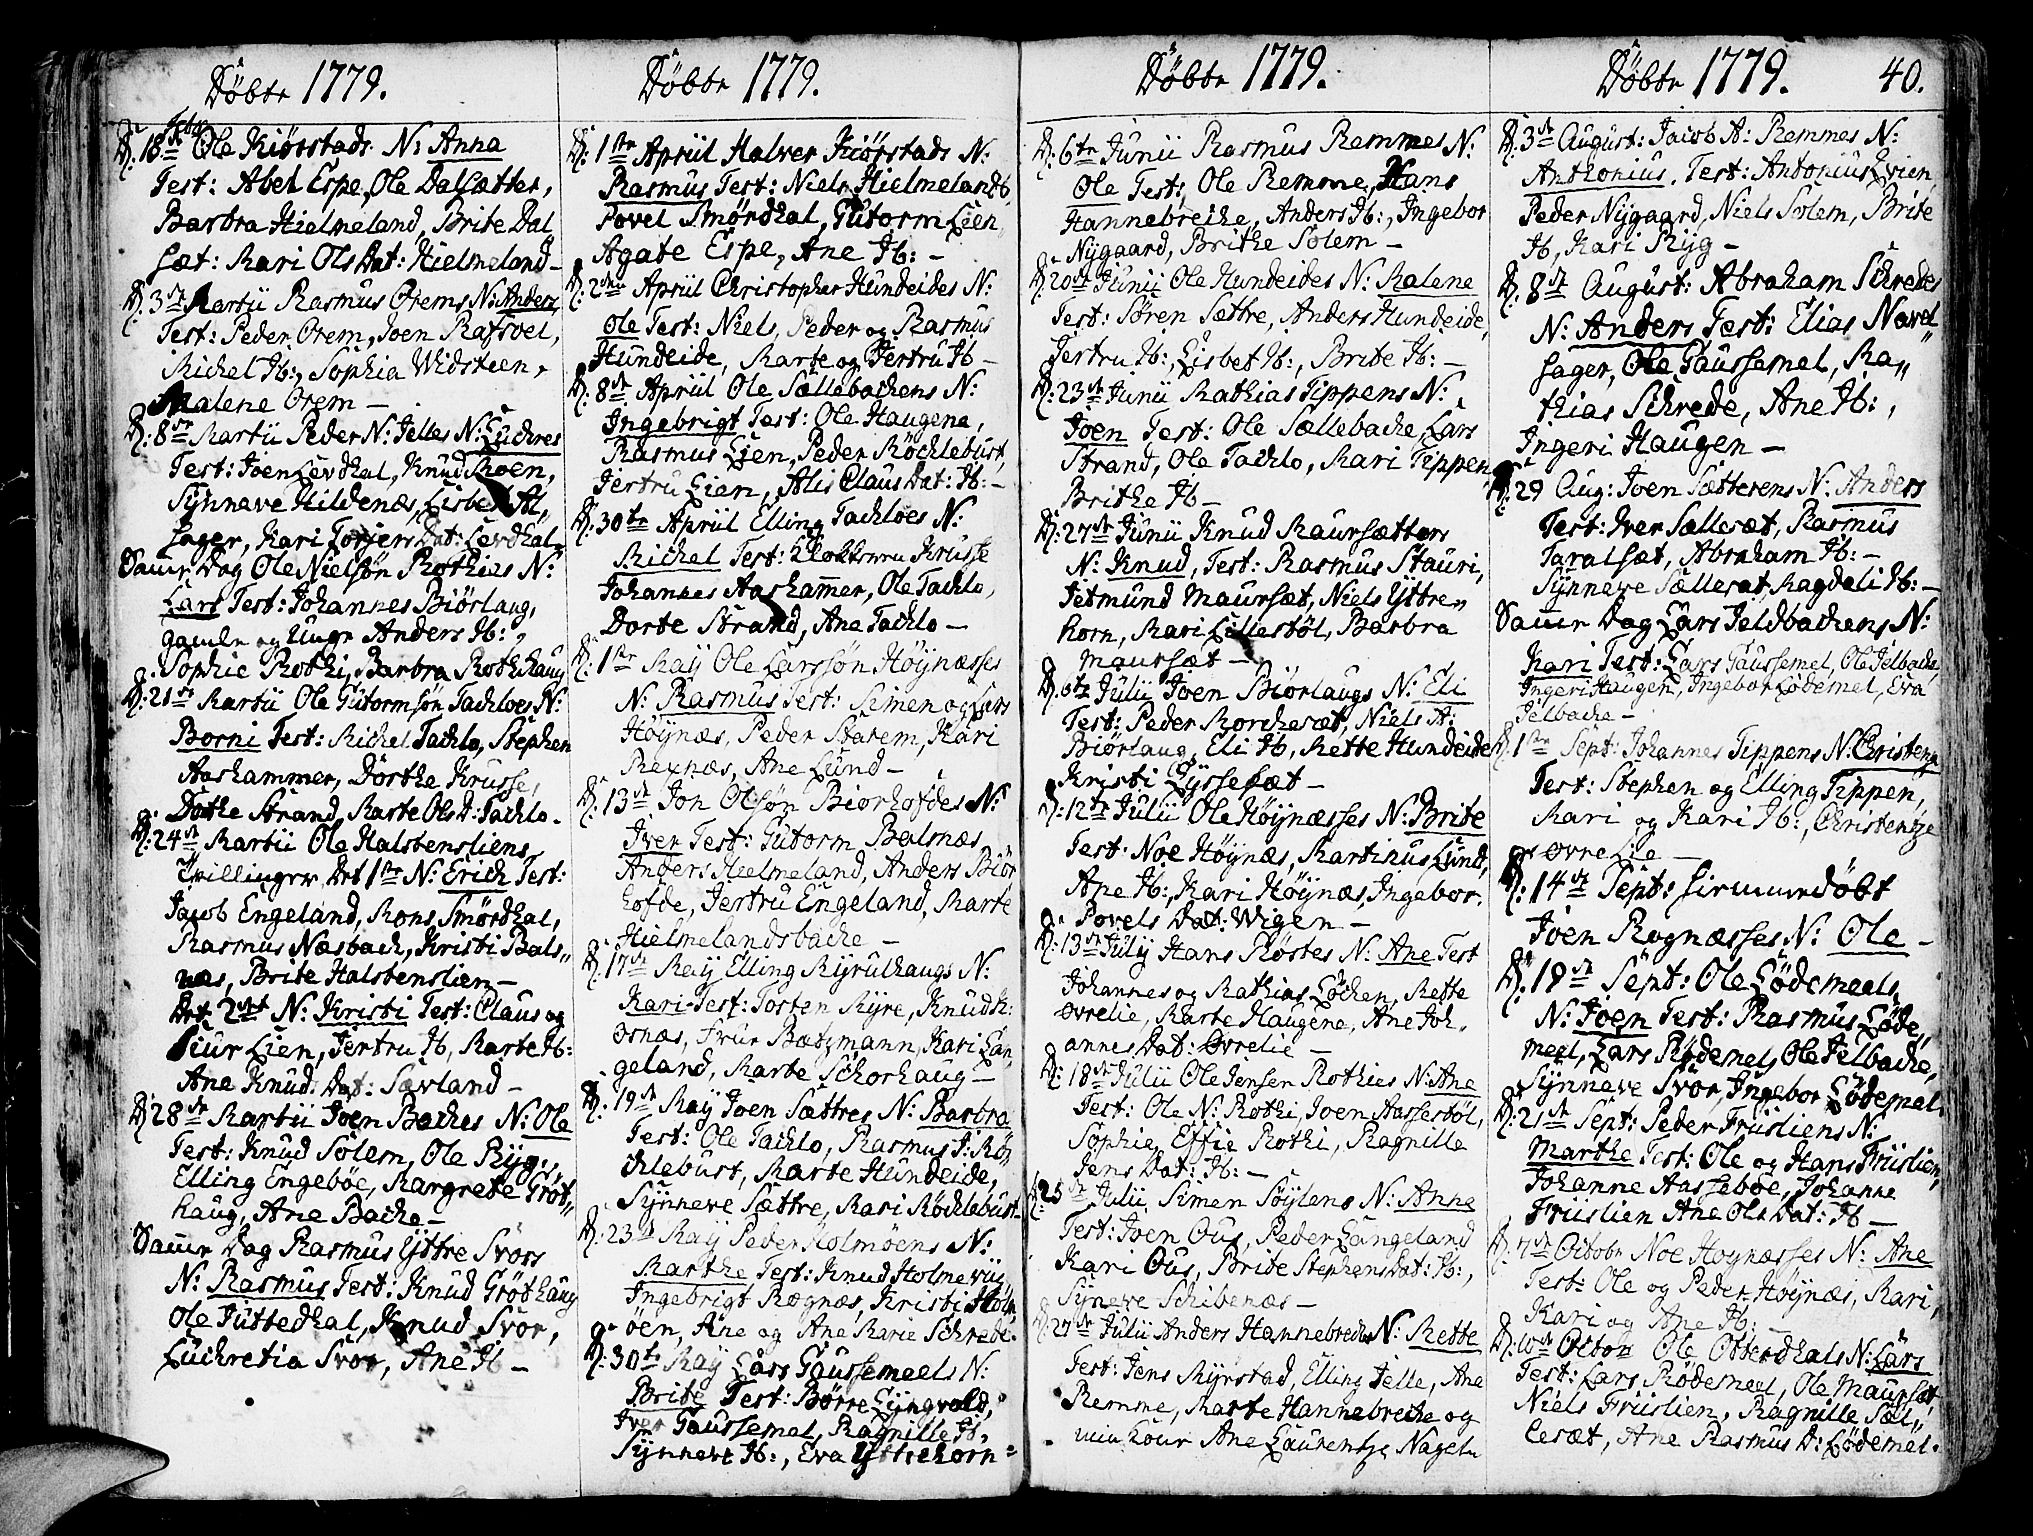 Döbte 1779.
D: 18de Febr Ole Kiörstads N: Anna
Test: Abel Espe, Ole Dalsætter,
Barbra Hielmeland, Brite Dal
sæt: Kari Ols Dat: Hielmeland –
D: 3de Martii Rasmus Orems N: Anders
Test: Peder Orem, Joen Rafsvel,
Michel Jb:, Sophia Widsteen,
Malene Orem –
D: 8de Martii Peder N: Jelles N: Luchres
Test: Joen Levdhal, Knud Moen,
Synneve Hildenæs, Lisbet Al„
sager, Kari Torjers Dat: Levdhal
Samme Dag Ole Nielsøn Rothies N:
Lars Test: Johannes Biörlaug,
gamle og Unge Anders Jb:,
Sophie Rothi, Barbra Rothhaug
D: 21de Martii Ole Gutormsön Tachloes N:
Borni Test: Michel Tachlo, Stephen
Aashammer, Dörthe Krusse,
Dorthe Strand, Marte Ols D: Tachlo.
D: 24de Martii Ole Halsbensliens
Tvillinger Det 1ste N: Erich Test:
Jacob Engeland, Mons Smördhal,
Rasmus Næsbach, Kristi Bals„
næs, Brite Halsbenslien –
Det 2det N: Kristi Test: Claus og
Siur Lien, Jertru Jb, Marte Jb:
Ane Knud Dat: Sævland –
D: 28de Martii Joen Baches N: Ole
Test: Knud Solem, Ole Ryg,
Elling Engeböe, Margrete Gröt„
haug, Ane Bache –
Samme Dag Rasmus Yttre Svörs
N: Rasmus Test: Knud Gröthaug
Ole Juttedhal, Knud Svor,
Luchretia Svor, Ane Jb –
Döbte 1779.
D: 1ste Apriil Halver Kiörstads N:
Rasmus Test: Niels Hielmelandb,
Povel Smördhal, Gutorm Lien,
Agate Espe, Ane Jb: –
D: 2den Apriil Christopher Hundeides N:
Ole Test: Niels, Peder og Rasmus
Hundeide, Marte og Jertru Jb –
D: 8de Apriil Ole Sællebachens N:
Ingebrigt Test: Ole Haugene,
Rasmus Lien, Peder Röchlebust,
Jertru Lien, Alis Claus Dat: Jb: –
D: 30te Apriil Elling Tachloes N:
Michel Test: Klokkeren Krusse
Johannes Aashammer, Ole Tachlo,
Dorte Strand, Ane Tachlo –
D: 1ste May Ole Larssön Höynæsses
N: Rasmus Test: Simen og Lars
Höynæs, Peder Starem, Kari
Rexnæs, Ane Lund –
D: 13de Jon Olsøn Biörhofdes N:
Iver Test: Gutorm Balsnæs,
Anders Hielmeland, Anders Biör
hofde, Jertru Engeland, Marte
Hielmelandsbache –
D: 17de May Elling Myrulhaugs N:
Kari Test: Torten Myre, Knud K:
osnæs, Frue Batzmann, Kari Lan„
geland, Marte Schorhaug –
D: 19de May Joen Sættres N: Barbra
Test: Ole Tachlo, Rasmus J: Rö„
chlebust, Marte Hundeide,
Synneve Sættre, Mari Röchlebust –
D: 23de May Peder Holmöens N:
Marthe Test: Knud Holmeviig,
Ingebrigt Rognæs, Kristi Holm
öen, Ane og Ane Marie Schrede.
D: 30te May Lars Gaussemeels N:
Brite Test: Börre Lyngvold,
Iver Gaussemel, Ragnille Jb,
Synneve Jb:, Eva Yttrehorn
Döbte 1779.
D: 6te Junii Rasmus Remmes N:
Ole Test: Ole Remme, Hans
Hannebreche, Anders Jb:, Ingebor
Nygaard, Brithe Solem –
D: 20de Junii Ole Hundeides N: Malene
Test: Sören Sættre, Anders Hundeide,
Jertru Jb:, Lisbet Jb:, Brite Jb: –
D: 23de Junii Mathias Tippens N:
Joen Test: Ole Sællebache, Lars
Strand, Ole Tachlo, Kari Tippen,
Brithe Jb –
D: 27de Junii Knud Maursætters
N: Knud, Test: Rasmus Stauri,
Jetmund Maursæt, Niels Yttre„
horn, Mari Lillestöl, Barbra
Maursæt –
D: 6te Julii Joen Biörlaugs N: Eli
Test: Peder Morchesæt, Niels A:
Biörlaug, Eli Jb, Mette Hundeide
Kristi Lyssesæt –
D: 12te Julii Ole Höynæsses N: Brite
Test: Noe Höynæs, Martinus Lund,
Ane Jb:, Kari Höynæs, Ingebor
Povels Dat: Wigen –
D: 13de July Hans Röstes N: Ane Test
Johannes og Mathias Löchen, Mette
Øvrelie, Marte Haugene, Ane Joh„
annes Dat: Øvrelie –
D: 18de Julii Ole Jensen Rothies N: Ane
Test: Ole N: Rothi, Joen Aassestöl,
Sophie, Effie Rothi, Ragnille
Jens Dat: Jb: –
D: 25de Julii Simen Söylens N: Anne
Test: Joen Ous, Peder Langeland
Kari Ous, Brite Stephens Dat: Jb:,
Syneve Schibenæs –
D: 27de Julii Anders Hannebreches N: Mette
Test: Jens Myrstad, Elling Jelle, Ane
Remme, Marte Hannebreche og
min koue Ane Laurentze Nageln
Döbte 1779.
40.
D: 3de August: Jacob A: Remmes N:
Anthonius. Test: Antonius Qvien,
Peder Nygaard, Niels Solem, Brite
Jb, Kari Ryg –
D: 8de August: Abraham Schredes
N: Anders Test: Elias Navel
sager, Ole Gaussemel, Ma„
thias Schrede, Ane Jb:,
Ingeri Haugen –
D: 29 Aug: Joen Sætterens N: Anders
Test: Iver Sællesæt, Rasmus
Taralsæt, Abraham Jb: –
Synneve Sællesæt, Magdeli Jb: –
Samme Dag Lars Jeldbachens N:
Kari Test: Lars Gaussemel, Ole Jelbache,
Ingeri Haugen, Ingebor Lödemel, Eva
Jelbache –
D: 1ste Sept: Johannes Tippens N: Christense
Test: Stephen og Elling Tippen,
Mari og Kari Jb:, Christentze
Øvre Lie –
D: 14de Sept: hiemmedöbt
Joen Rognæsses N: Ole –
D: 19de Sept: Ole Lödemeels
N: Joen Test: Rasmus Löde„
meel, Lars Rödemel, Ole Jelbache,
Synneve Svor, Ingebor Lödemel.
D: 21de Sept: Peder Friisliens N:
Marthe Test: Ole og Hans Friislien,
Johanne Aasseböe, Johanne
Friislien Ane Ole Dat: Jb –
D: 7de Octobr Noe Hoynæsses N: Ane
Test: Ole og Peder Höynæs, Kari,
Kari og Ane Jb: –
D: 10de Octobr Ole Otterdhals N: Lars
Test: Lars Rödemeel, Ole Maursæt,
Niels Friislien, Ragnille Sæl„
lesæt, Ane Rasmus D: Lödemel.